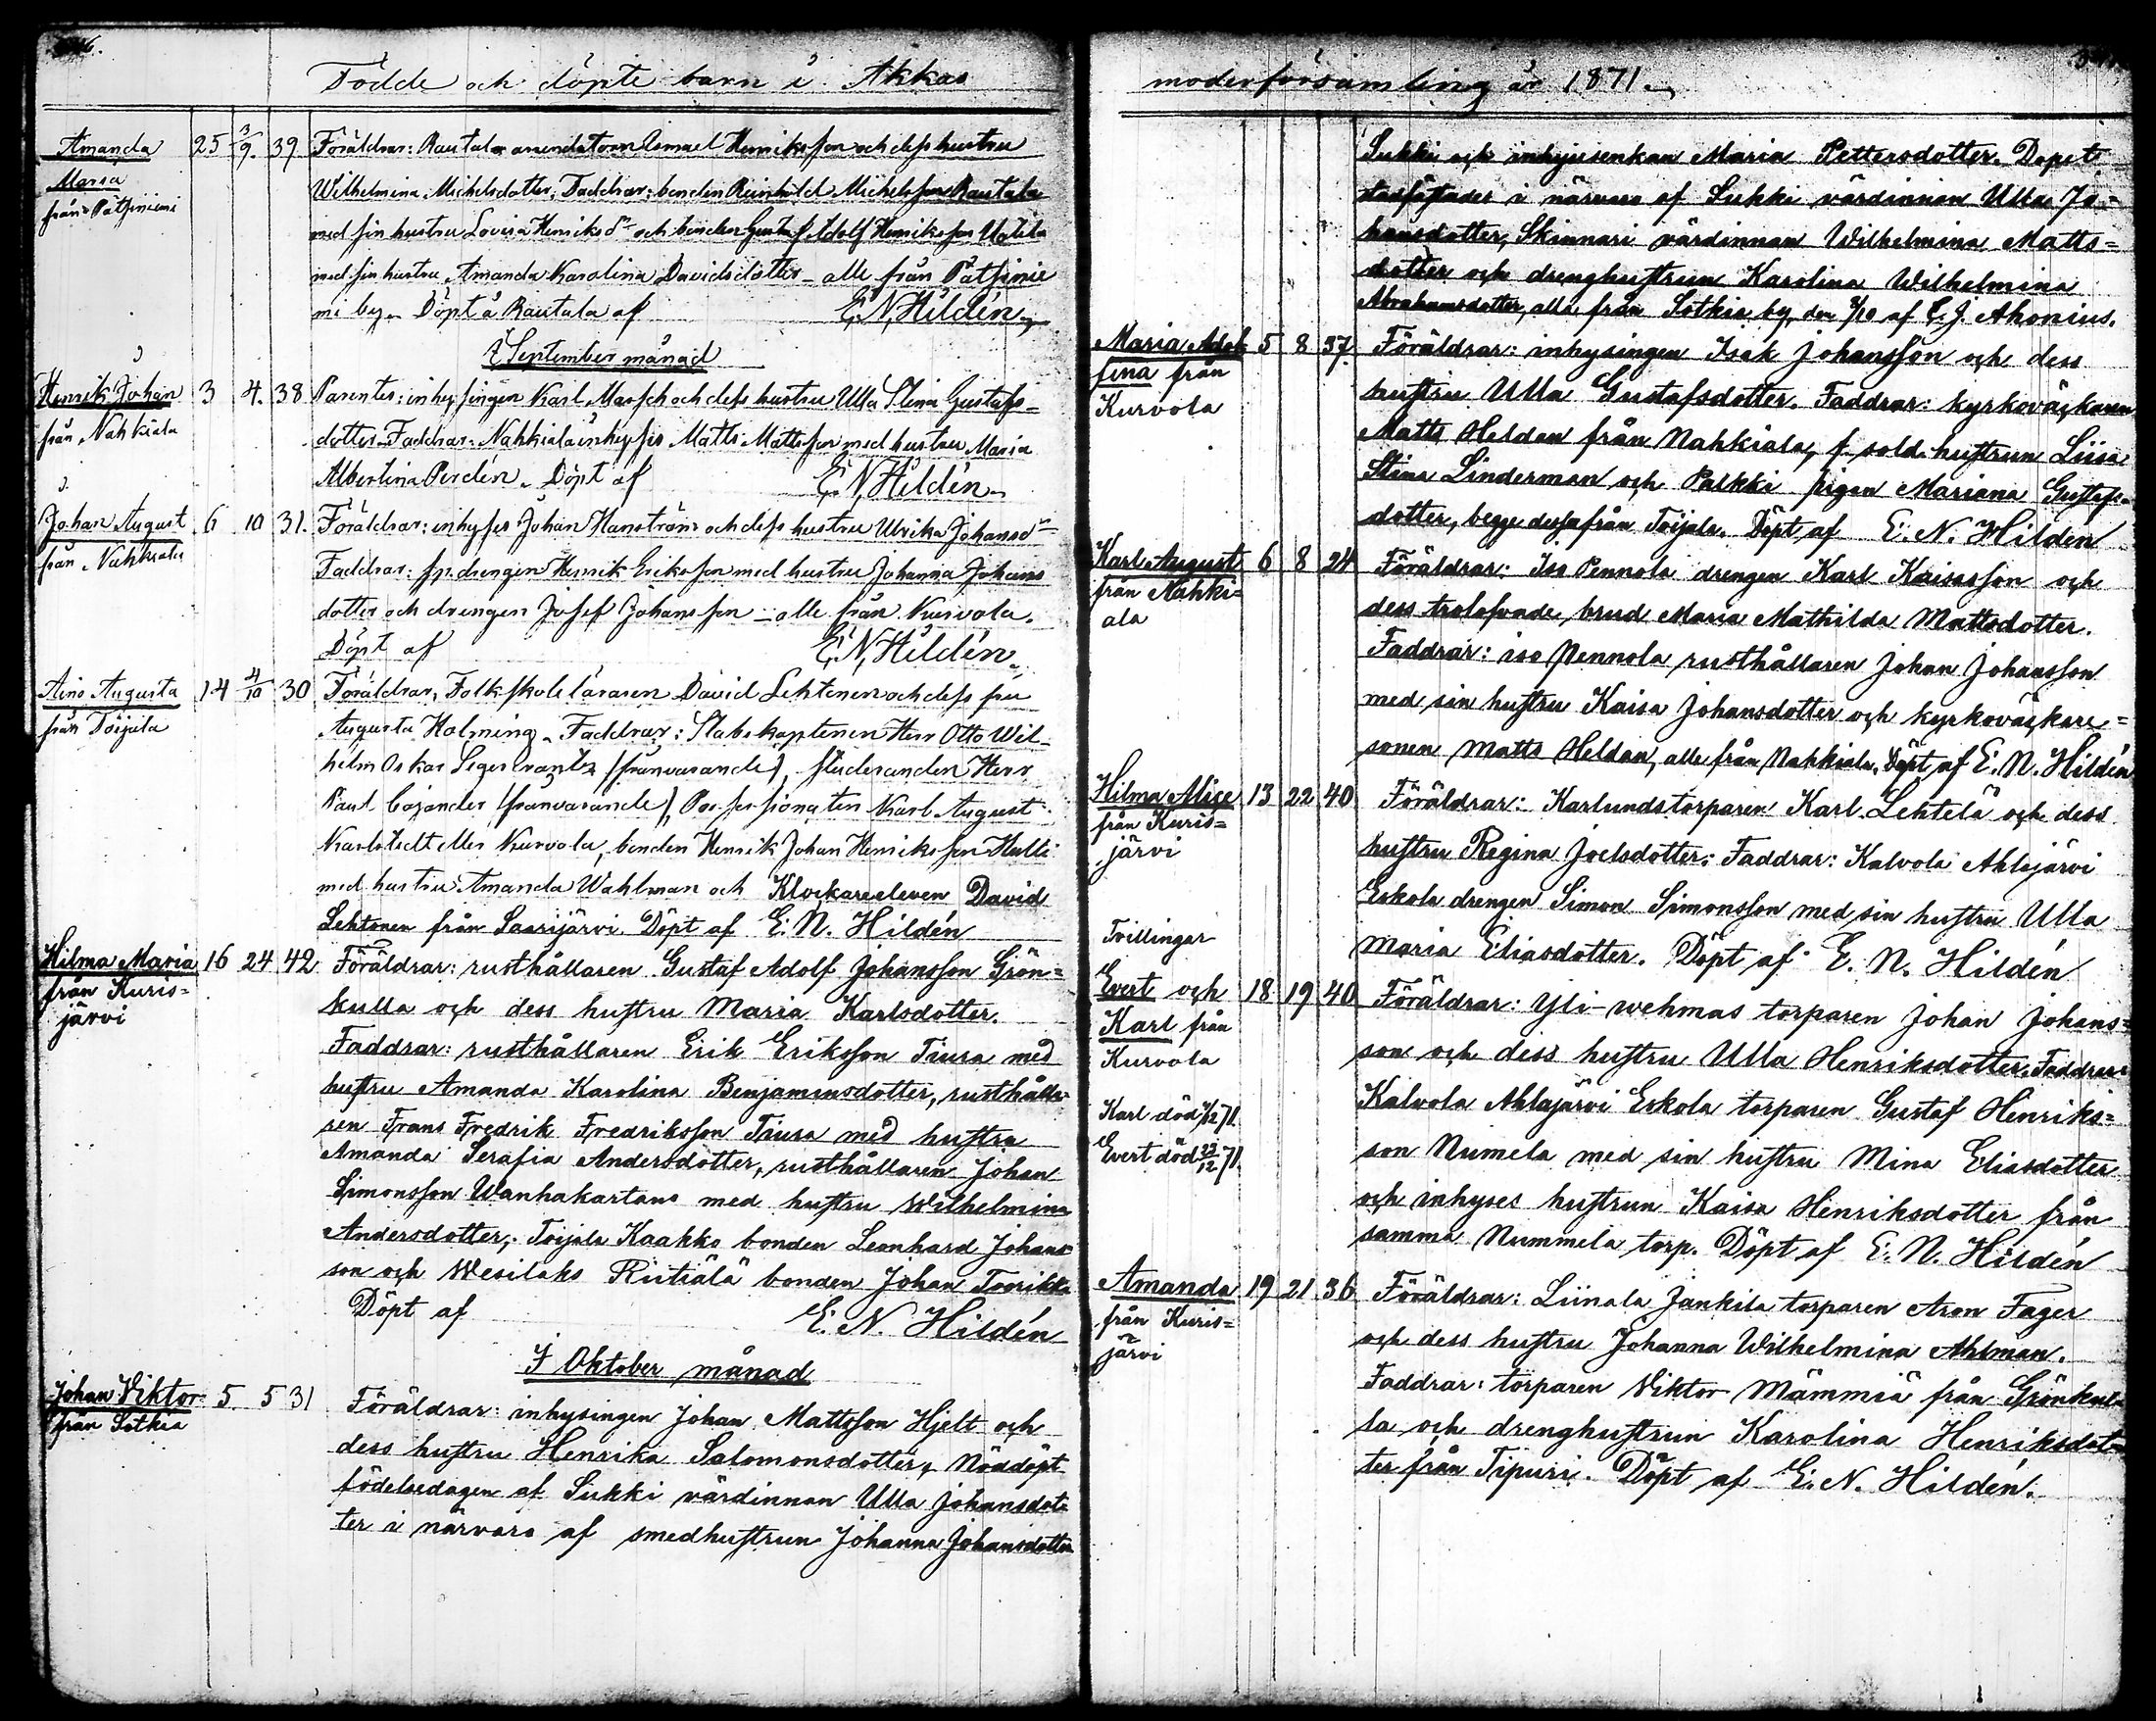 Födde och döpte barn i Akkas
Amanda 25 3/9. 39 Föräldrar: Rautala arrendatorn Ismael Henriksson och dess hustru
Maria Wilhelmina Michelsdotter. Faddrar: bonden Reinhold Michelsson Rautala
från Pätsiniemi med sin hustru Lovisa Henriksdr och bonden Gustaf Adolf Henriksson Uotila
med sin hustru Amanda Karolina Davidsdotter - alle från Pätsinie
mi by. Döpt å Rautala af E. N. Hildén
I September månad
Henrik Johan 3 4. 38 Parentes: inhysingen Karl Marsch och dess hustru Ulla Stina Gustafs=
från Nahkiala dotter. Faddrar: Nahkiala inhyses Matts Mattsson med hustru Maria
Albertina Perdén. Döpt af E. N. Hildén
Johan August 6 10 31. Föräldrar: inhyses Johan Hanström och dess hustru Ulrika Johansdr
från Nahkiala Faddrar: drengen Henrik Eriksson med hustru Johanna Johans
dotter och drengen Josef Johansson - alle från Kurvola.
Döpt af E. N. Hildén
Aino Augusta 14 4/10 30 Föräldrar: Folkskoleläraren David Lehtonen och dess fru
från Toijala Augusta Holming. Faddrar: Stabskaptenen Herr Otto Wil=
helm Oskar Segercrantz (frånvarande), studeranden Herr
Paul Cajander (frånvarande), Possessionaten Karl August
Karlstedt Kurvola, bonden Henrik Johan Henriksson Hulli
med hustru Amanda Wahlman och Klockareeleven David
Lehtonen från Saarijärvi. Döpt af E. N. Hildén
Hilma Maria 16 24 42 Föräldrar: rusthållaren Gustaf Adolf Johansson Grön=
från Kuris= kulla och dess hustru Maria Karlsdotter.
järvi Faddrar: rusthållaren Erik Eriksson Tiura med
hustru Amanda Karolina Benjaminsdotter, rusthålla
ren Frans Fredrik Fredriksson Tiura med hustru
Amanda Serafia Andersdotter, rusthållaren Johan
Simonsson Wanhakartano med hustru Wilhelmina
Andersdotter, Toijala Kaakko bonden Leonhard Johans
son och Wesilaks Riitiälä bonden Johan
Döpt af E. N. Hildén
I Oktober månad
Johan Viktor 5. 5 31 Föräldrar: inhysingen Johan Mattsson Hjelt och
från Sotkia dess hustru Henrika Salomonsdotter, Nöddöpt
födelsedagen af Sukki värdinnan Ulla Johansdot
ter i närvaro af smedhustrun Johanna Johansdotter
moderförsamling år 1871.
Sukki och inhysesenkan Maria Pettersdotter. Dopet
stadfästades i närvaro af Sukki värdinnan Ulla Jo=
hansdotter, Skinnari värdinnan Wilhelmina Matts=
dotter och drenghustrun Karolina Wilhelmina
Abrahamsdotter, alla från Sotkia by, den /10 af C. J. Ahonius.
Maria Adol 5 8 37. Föräldrar: inhysingen Isak Johansson och dess
fina från hustru Ulla Gustafsdotter. Faddrar: kyrkoväckaren
Kurvola Matts Heldan från Nahkiala, f. sold. hustrun Liisa
Stina Linderman och Palkki pigan Mariana Gustafs=
dotter, begge dessa från Toijala. Döpt af E. N. Hildén
Karl August 6 8 24 Föräldrar: Iso Pennola drengen Karl Kaisasson och
från Nahki= dess trolofvade brud Maria Mathilda Mattsdotter.
ala Faddrar: iso Pennola rusthållaren Johan Johansson
med sin hustru Kaisa Johansdotter och kyrkoväckare=
sonen Matts Heldan, alle från Nahkiala. Döpt af E. N. Hildén
Hilma Alice 13 22 40 Föräldrar: Karlundstorparen Karl Lehtelä och dess
från Kuris= hustru Regina Joelsdotter. Faddrar: Kalvola Ahlajärvi
järvi Eskola drengen Simon Simonsson med sin hustru Ulla
Maria Eliasdotter. Döpt af E. N. Hildén
Tvillingar
Evert och 18 19 40 Föräldrar: Yli-wehmas torparen Johan Johans=
Karl från son och dess hustru Ulla Henriksdotter. Faddrar:
Kurvola Kalvola Ahlajärvi Eskola torparen Gustaf Henriks=
Karl död /12 71 son Numela med sin hustru Mina Eliasdotter
Evert död 23/12 71. och inhyses hustrun Kaisa Henriksdotter från
samma Nummela torp. Döpt af E. N. Hildén
Amanda 19 21 36 Föräldrar: Liinala Jankila torparen Aron Fager
från Kuris= och dess hustru Johanna Wilhelmina Ahlman.
järvi Faddrar: torparen Viktor Mämmiä från Grönkul
la och drenghustrun Karolina Henriksdot
ter från Tipuri. Döpt af E. N. Hildén.